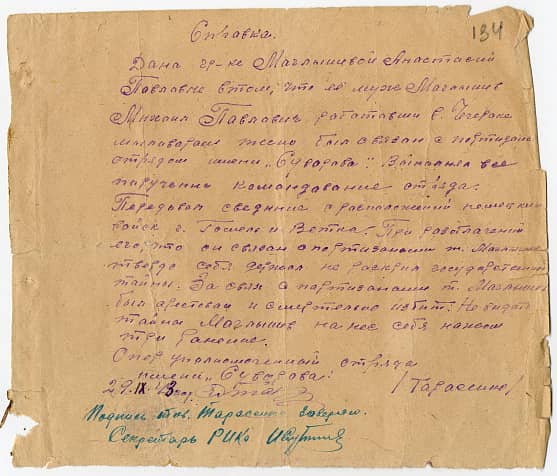 134
Справка.
Дана гр-ке Маглышевой Анастасий
Павловне в том, что её муж Маглышев
Михаил Павлович работавши в
был связан с партизанс
отрядом имени „Суворова". Выполнял все
поручения командование отряда.
Передавал сведения о расположений немецких
войск г. Гомель и Ветка. При
что он связан с партизанами т. Маглышев
твердо себя держал не раскрил государствен
тайны. За связь с партизанами т. Маглышев
был арестован и смертельно избит. Не выдать
тайны Маглышев нанес себя ножом
три ранение.
Опер уполномоченный отряда
имени „Суворова"
29.IX /Тарасенко/
Подпись тов. Тарасенко заверяю.
Секретарь РИКа